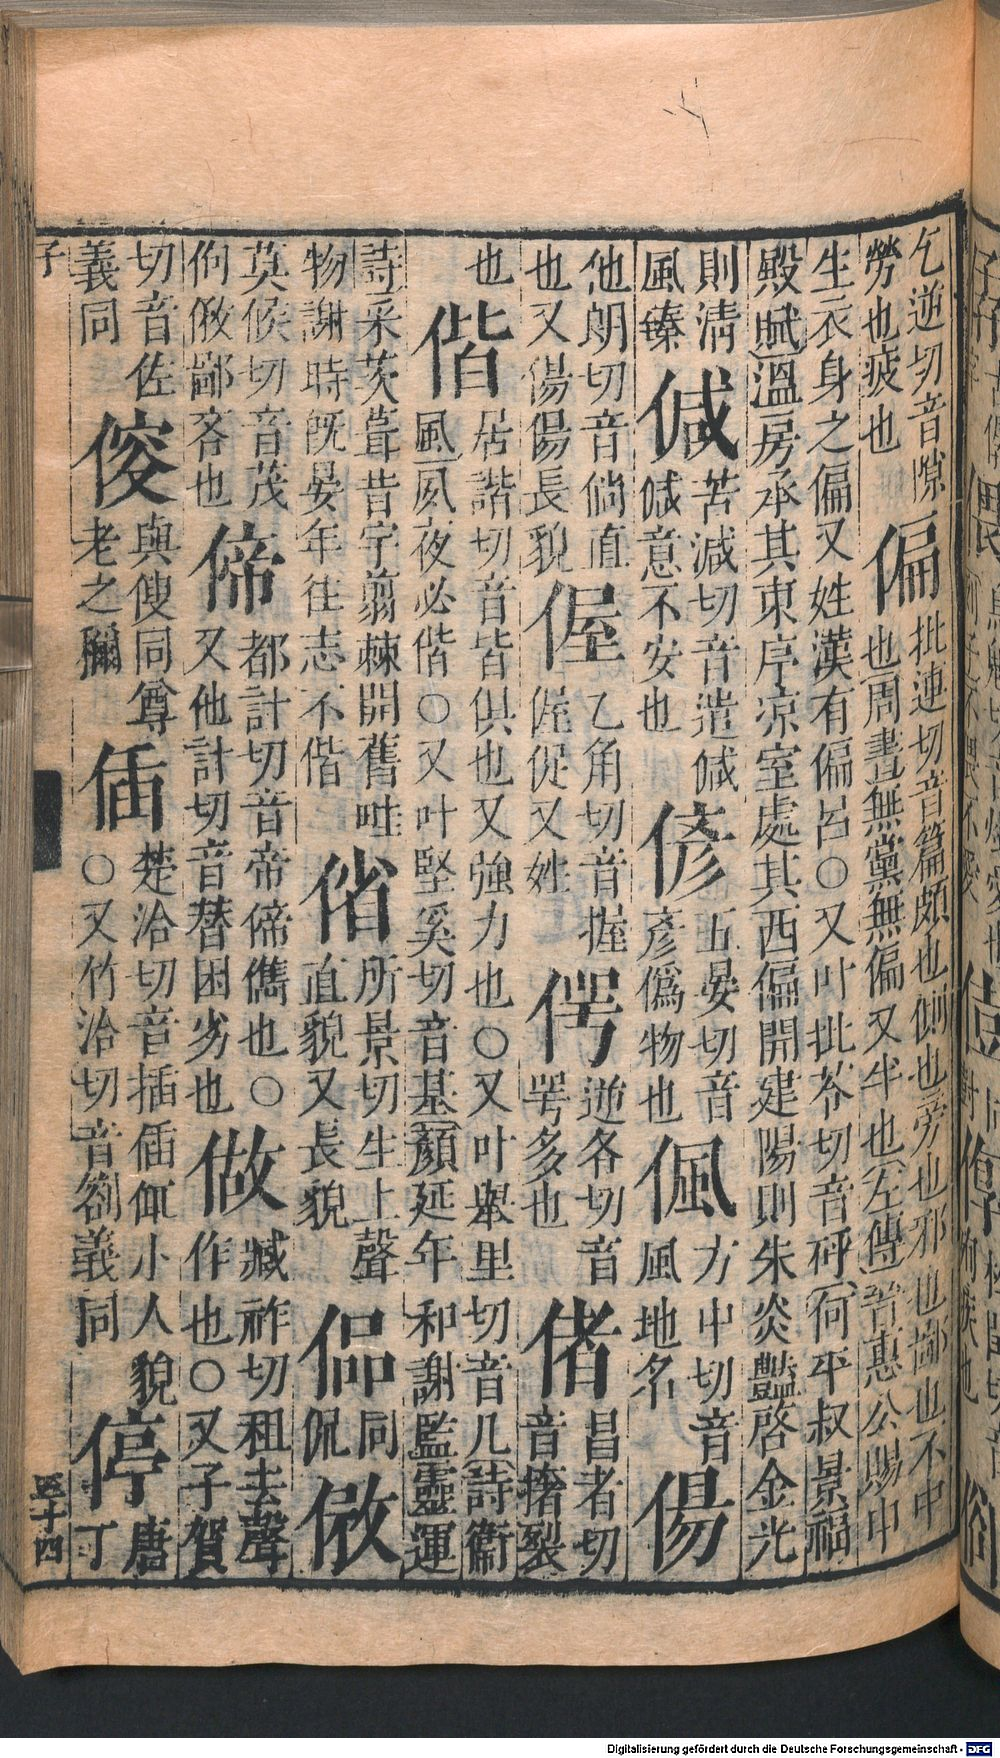 乞逆切音隙
勞也疲也
偏
批連切音篇頗也側也旁也邪也鄙也不中
也周書無黨無偏又半也左傳晉惠公賜中
生衣身之偏又姓漢有偏呂○又叶批苓切音砰何平叔景福
殿賦溫房承其東序凉室處其西偏開建陽則朱炎豔啓金光
則清
風臻
偡
苦減切音𨗽
偡意不安也
偐
五晏切音
彥僞物也
偑
方中切音
風地名
偒
他朗切音倘直
也又偒偒長貌
偓
乙角切音握
偓促又姓
偔
逆各切音
咢多也
偖
昌者切
音撦裂
也
偕
居諧切音皆俱也又強力也○又叶舉里切音几詩衞
風夙夜必偕○又叶堅奚切音基顏延年和謝監靈運
詩采茨葺昔宇翦棘開舊畦
物謝時旣晏年往志不偕
偗
所景切生上聲
直貌又長貌
偘
同
侃
㑸
莫候切音茂
佝㑸鄙吝也
偙
都計切音帝偙儁也○
又他計切音替困劣也
做
臧祚切租去聲
作也○又子賀
切音佐
義同
傁
與傻同尊
老之稱
偛
楚洽切音插偛㑙小人貌
○又竹洽切音劄義同
停
唐
丁
子
五十四
Digitalisierung gefördert durch die Deutsche Forschungsgemeinschaft - DFG